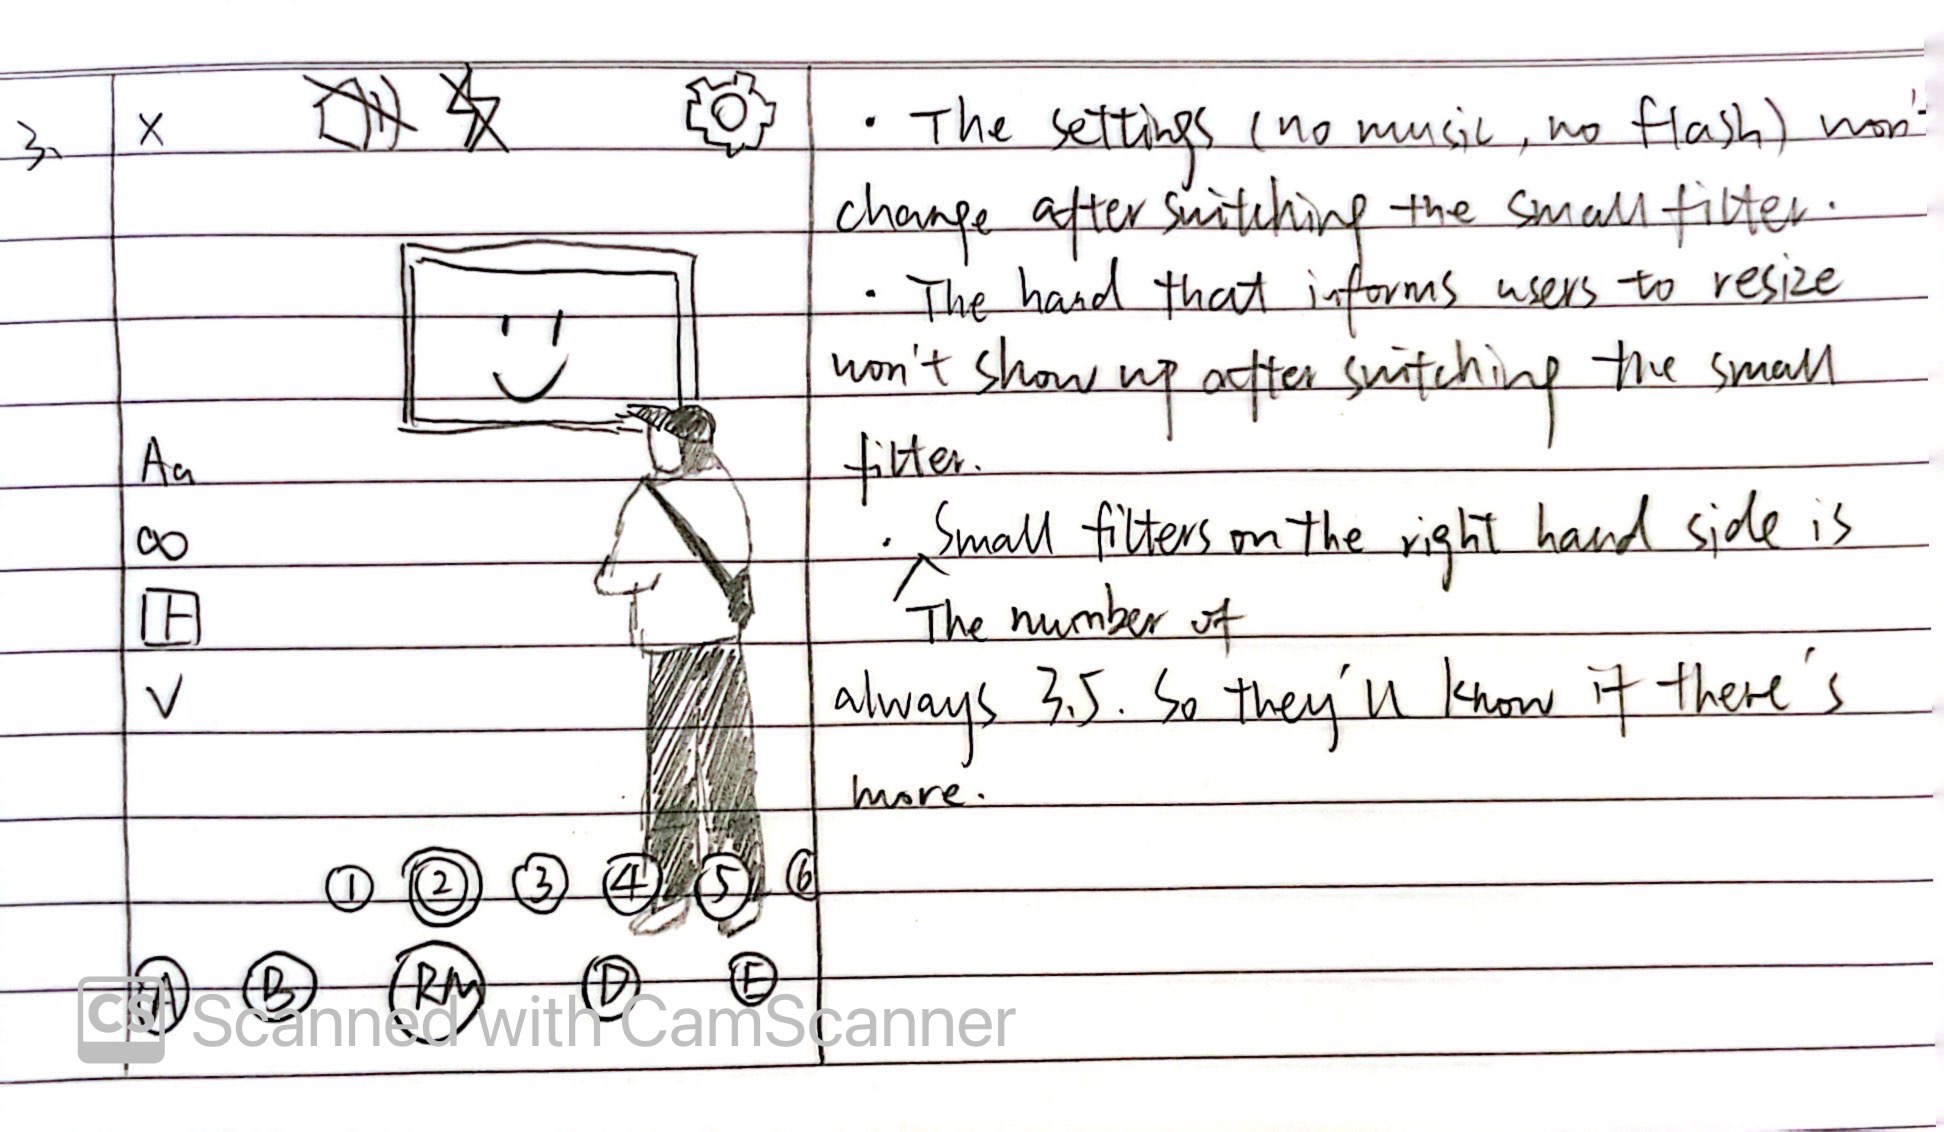 3.
X
• The settings (no music, no flash) won't
change after switching the small filter.
• The hand that informs users to resize
won't show up after switching the small
filter.
Aa
• Small filters on the right hand side is
∞
The number of
always 3.5. So they'll know if there's
more.
1 2 3 4 5 6
A B RM D E
CS Scanned with CamScanner